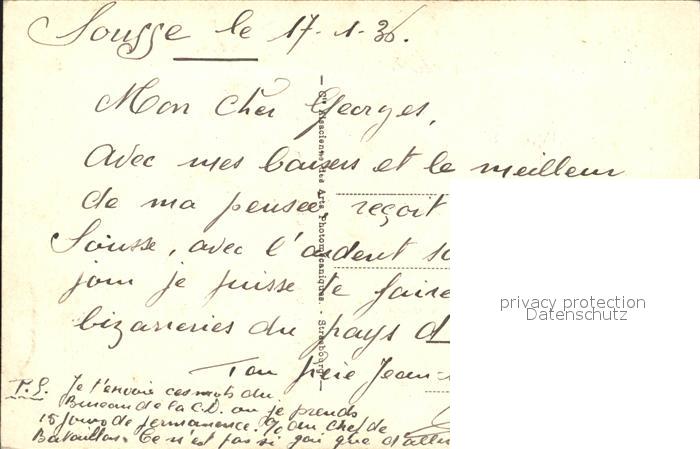 Sousse le 17-1-36.
Mon cher Georges,
Avec mes baisers et le meilleur
de ma pensée, reçoit
Sousse, avec l'ardent so
jour je puisse te faire
bizarreries du pays d
Ton frère Jean-
P.S. Je t'envoie ces mots du
Bureau de la C.D. ou je prends
15 jours de permanence. du chef de
Bataillon. Ce n'est pas si gai que d'aller
Cie Alsacienne des Arts Photomécaniques. - Strasbourg
privacy protection
Datenschutz